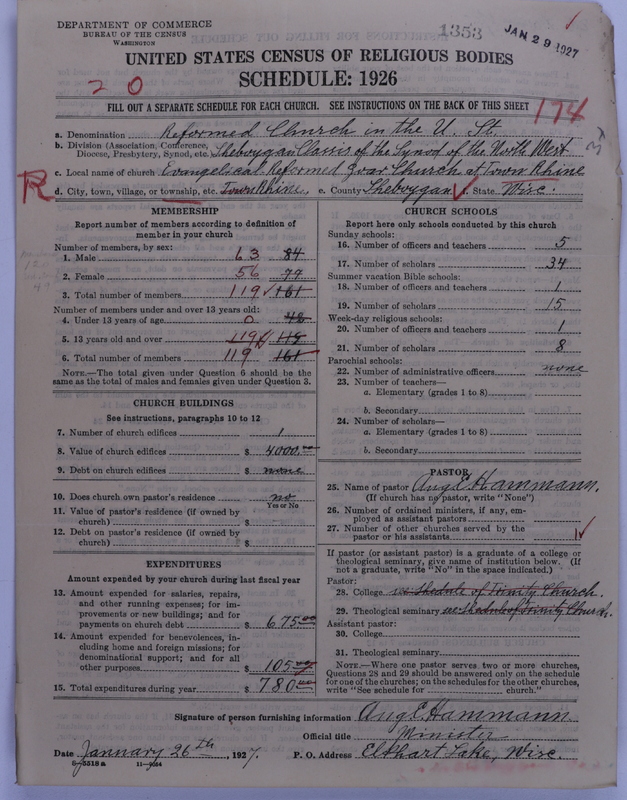 DEPARTMENT OF COMMERCE
BUREAU OF THE CENSUS
WASHINGTON
1353
JAN 29 1927
1
UNITED STATES CENSUS OF RELIGIOUS BODIES
SCHEDULE: 1926
2 0
FILL OUT A SEPARATE SCHEDULE FOR EACH CHURCH. SEE INSTRUCTIONS ON THE BACK OF THIS SHEET
174
a. Denomination Reformed Church in the U. St.
b. Division (Association, Conference, Diocese, Presbytery, Synod, etc. Sheboygan Classis of the Synod of the North West
c. Local name of church Evangelical Reformed Zoar Church at Town Rhine
R d. City, town, village, or township, etc. Town Rhine, e. County Sheboygan f. State Wisc.
MEMBERSHIP
Report number of members according to definition of member in your church
Number of members, by sex:
1. Male 63 84
2. Female 56 77
3. Total number of members 119 161
Number of members under and over 13 years old:
4. Under 13 years of age 0 48
5. 13 years old and over 119 113
6. Total number of members 119 161
NOTE.—The total given under Question 6 should be the same as the total of males and females given under Question 3.
CHURCH BUILDINGS
See instructions, paragraphs 10 to 12
7. Number of church edifices 1
8. Value of church edifices $ 4000.00
9. Debt on church edifices $ none
10. Does church own pastor's residence no
Yes or No
11. Value of pastor's residence (if owned by church) $
12. Debt on pastor's residence (if owned by church) $
EXPENDITURES
Amount expended by your church during last fiscal year
13. Amount expended for salaries, repairs, and other running expenses; for improvements or new buildings; and for payments on church debt $ 675.00
14. Amount expended for benevolences, including home and foreign missions; for denominational support; and for all other purposes $ 105.00
15. Total expenditures during year $ 780.00
CHURCH SCHOOLS
Report here only schools conducted by this church
Sunday schools:
16. Number of officers and teachers 5
17. Number of scholars 34
Summer vacation Bible schools:
18. Number of officers and teachers 1
19. Number of scholars 15
Week-day religious schools:
20. Number of officers and teachers 1
21. Number of scholars 8
Parochial schools:
22. Number of administrative officers none
23. Number of teachers—
a. Elementary (grades 1 to 8)
b. Secondary
24. Number of scholars—
a. Elementary (grades 1 to 8)
b. Secondary
PASTOR
25. Name of pastor Aug E. Hammann.
(If church has no pastor, write "None")
26. Number of ordained ministers, if any, employed as assistant pastors
27. Number of other churches served by the pastor or his assistants 1
If pastor (or assistant pastor) is a graduate of a college or theological seminary, give name of institution below. (If not a graduate, write "No" in the space indicated.)
Pastor:
28. College see shedule of Trinity Church.
29. Theological seminary see shedule of Trinity Church.
Assistant pastor:
30. College
31. Theological seminary
NOTE.—Where one pastor serves two or more churches, Questions 28 and 29 should be answered only on the schedule for one of the churches; on the schedules for the other churches, write "See schedule for church."
Signature of person furnishing information Aug E. Hammann
Official title Minister
Date January 26th, 1927. P. O. Address Elkhart Lake, Wisc.
11—9064